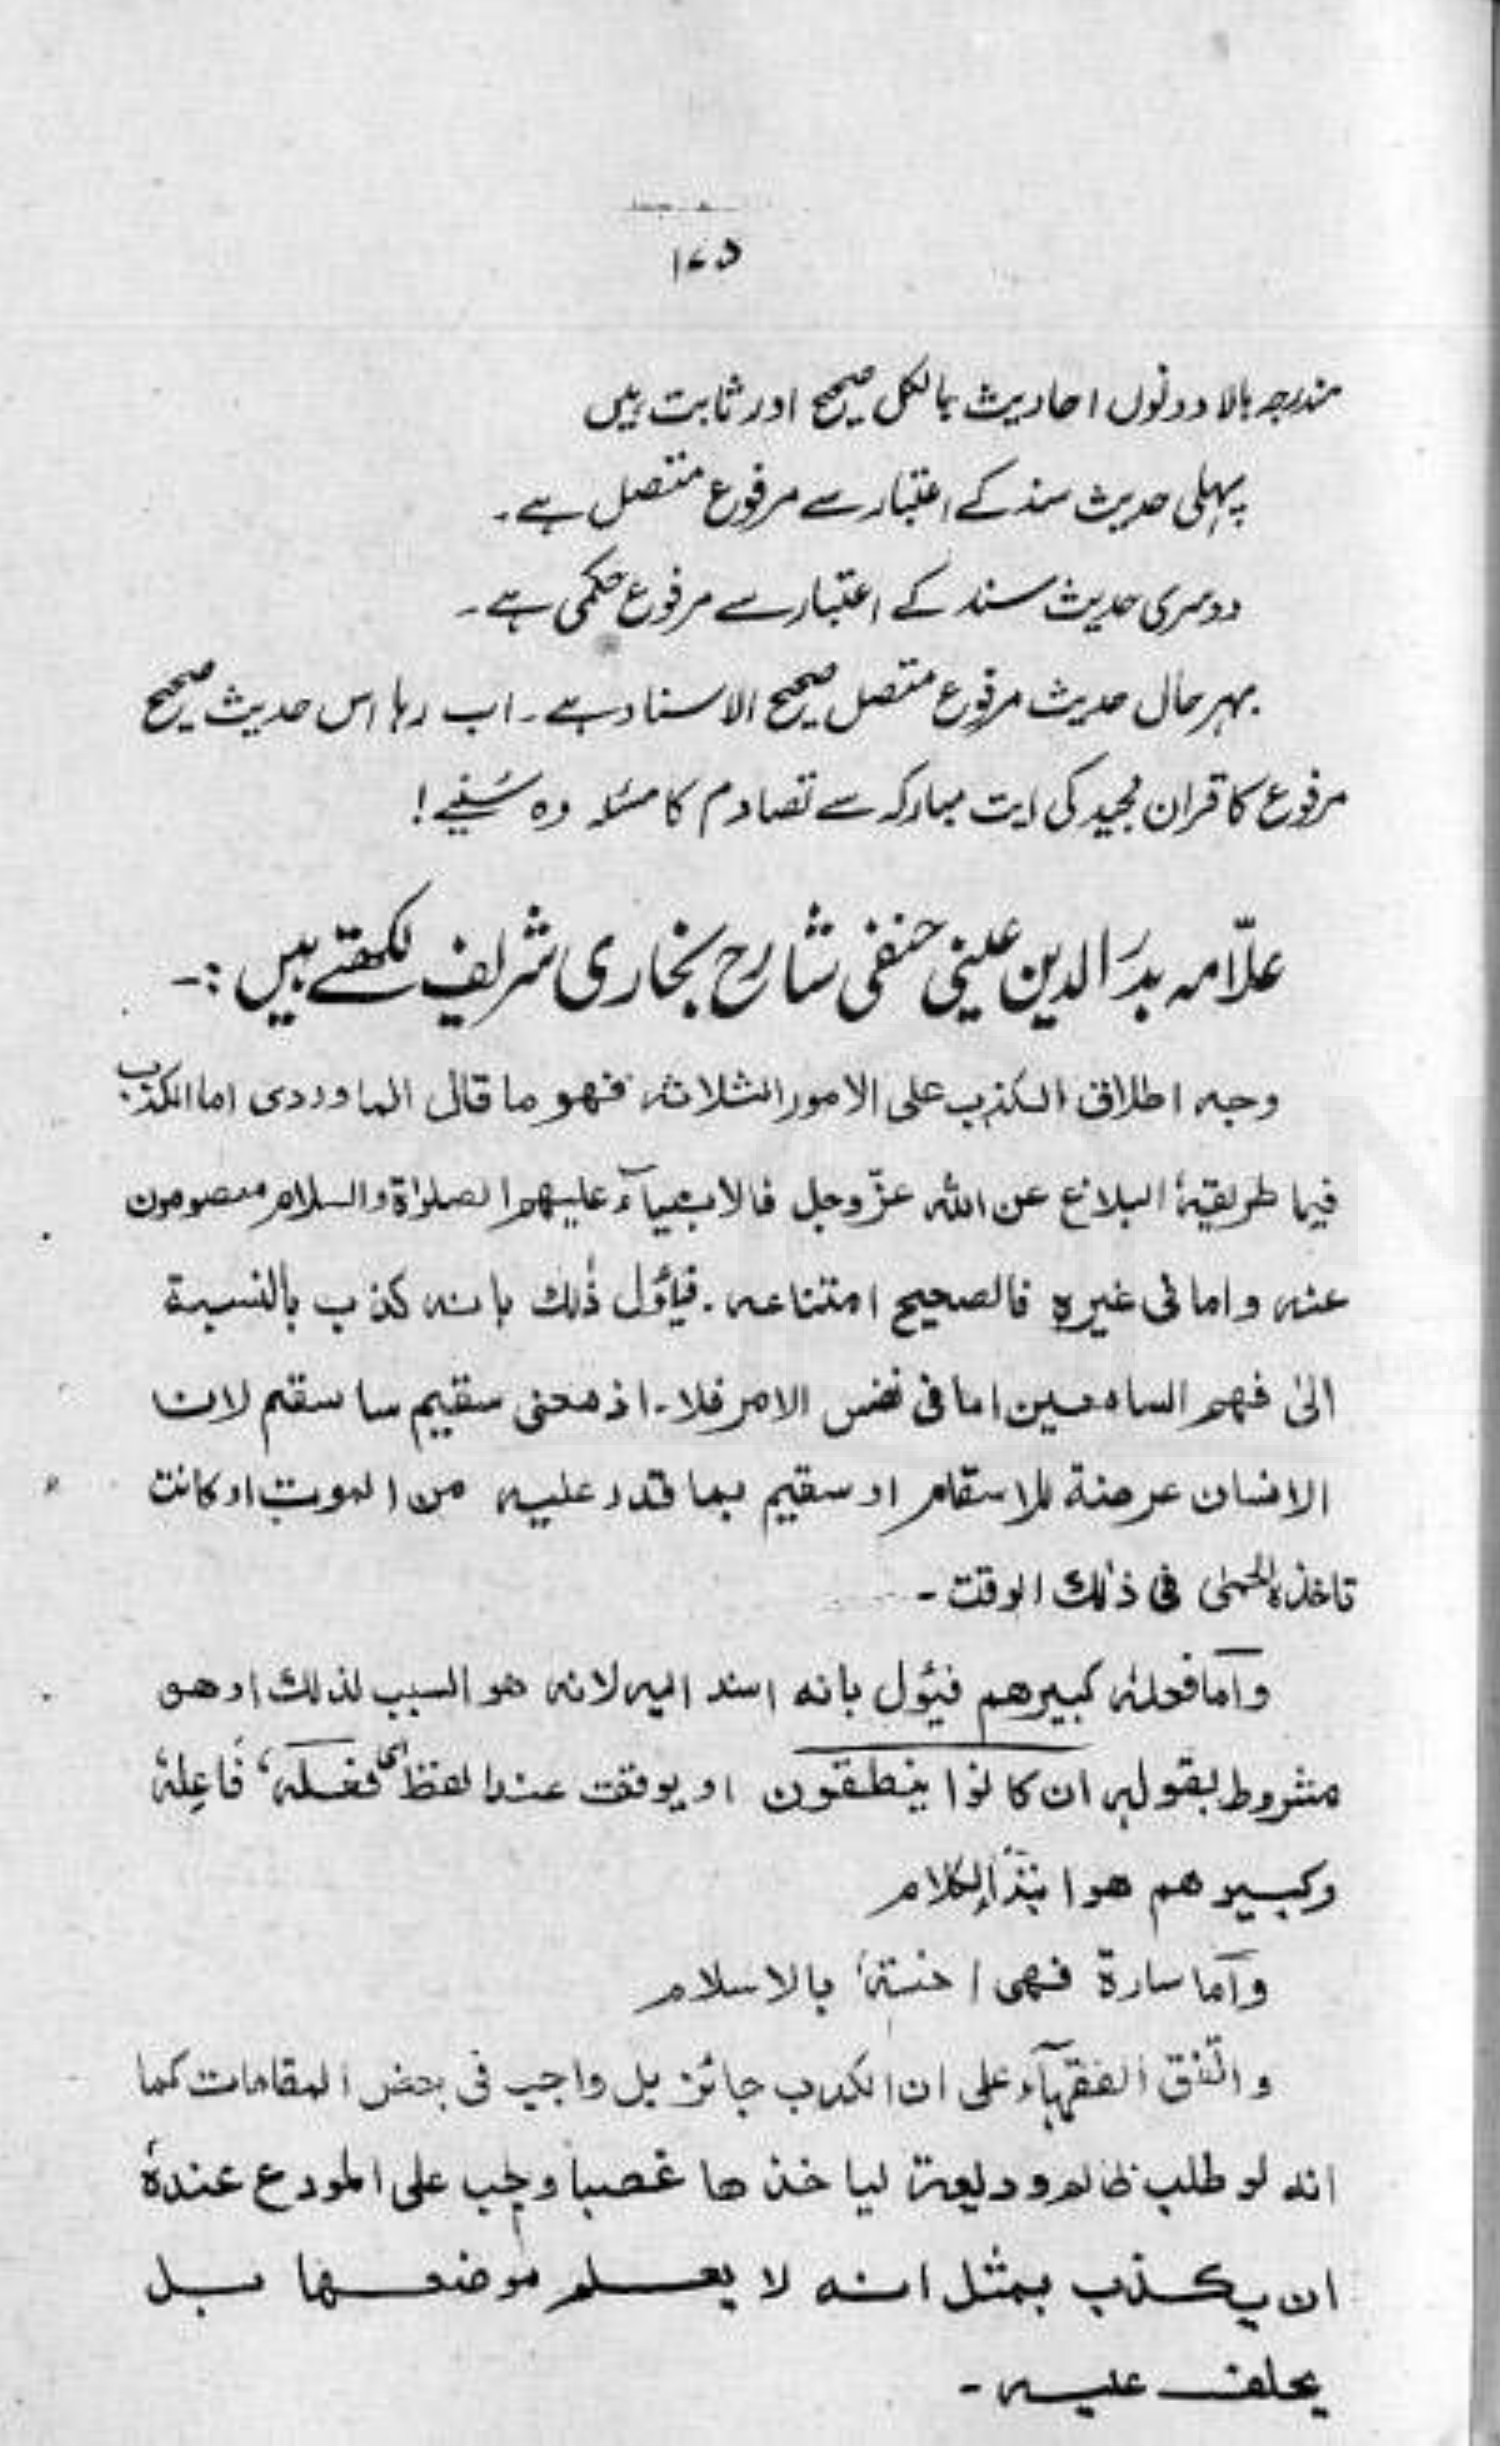 ۱۷۵
مندرجہ بالا دونوں احادیث بالکل صحیح اور ثابت ہیں
پہلی حدیث سند کے اعتبار سے مرفوع متصل ہے۔
دوسری حدیث سند کے اعتبار سے مرفوع حکمی ہے۔
بہر حال حدیث مرفوع متصل صحیح الاسناد ہے۔ اب رہا اس حدیث صحیح
مرفوع کا قران مجید کی ایت مبارکہ سے تصادم کا مسئلہ وہ سُنیے!
علّامہ بدرَ الدین عینی حنفی شارح بخاری شریف لکھتے ہیں :۔
وجہ اطلاق الکذب علی الامور الثلاثہ فھو ما قال الماوردی اما الکذب
فیما طریقیۂ البلاغ عن اللہ عزّوجل فالانبیآء علیھم الصلوٰۃ والسلام معصومون
عنہ و اما فی غیرہ فالصحیح امتناعہ۔ فیأوّل ذٰلک بانہ کذب بالنسبة
الیٰ فھم السامعین اما فی نفس الامر فلا۔ اذ معنی سقیم ساسقم لان
الانسان عرضة للاسقام او سقیم بما قدر علیہ من الموت او کانت
تاخذہ الحمیٰ فی ذٰلک الوقت ۔
وآما فعلہٗ کبیرھم فیئول بانہ اسند الیہ لانہ ھو السبب لذلک او ھو
مشروط بقولہ ان کانوا ینطقون او یوقف عند لفظ ای فعلہ، فَاعِلہٗ
وکبیرھم ھو ابتدٔا الکلام
وآما سارة فھی اختہٗ بالاسلام
واتّفق الفقہآء علی ان الکذب جائز بل واجب فی بعض المقامات کما
انہ لو طلب ظالم ودیعة لیاخذ ھا غصبا وجب علی المودع عندہٗ
ان یکذب بمثل انہ لا یعلم موضعھا بل
یحلف علیہ ۔